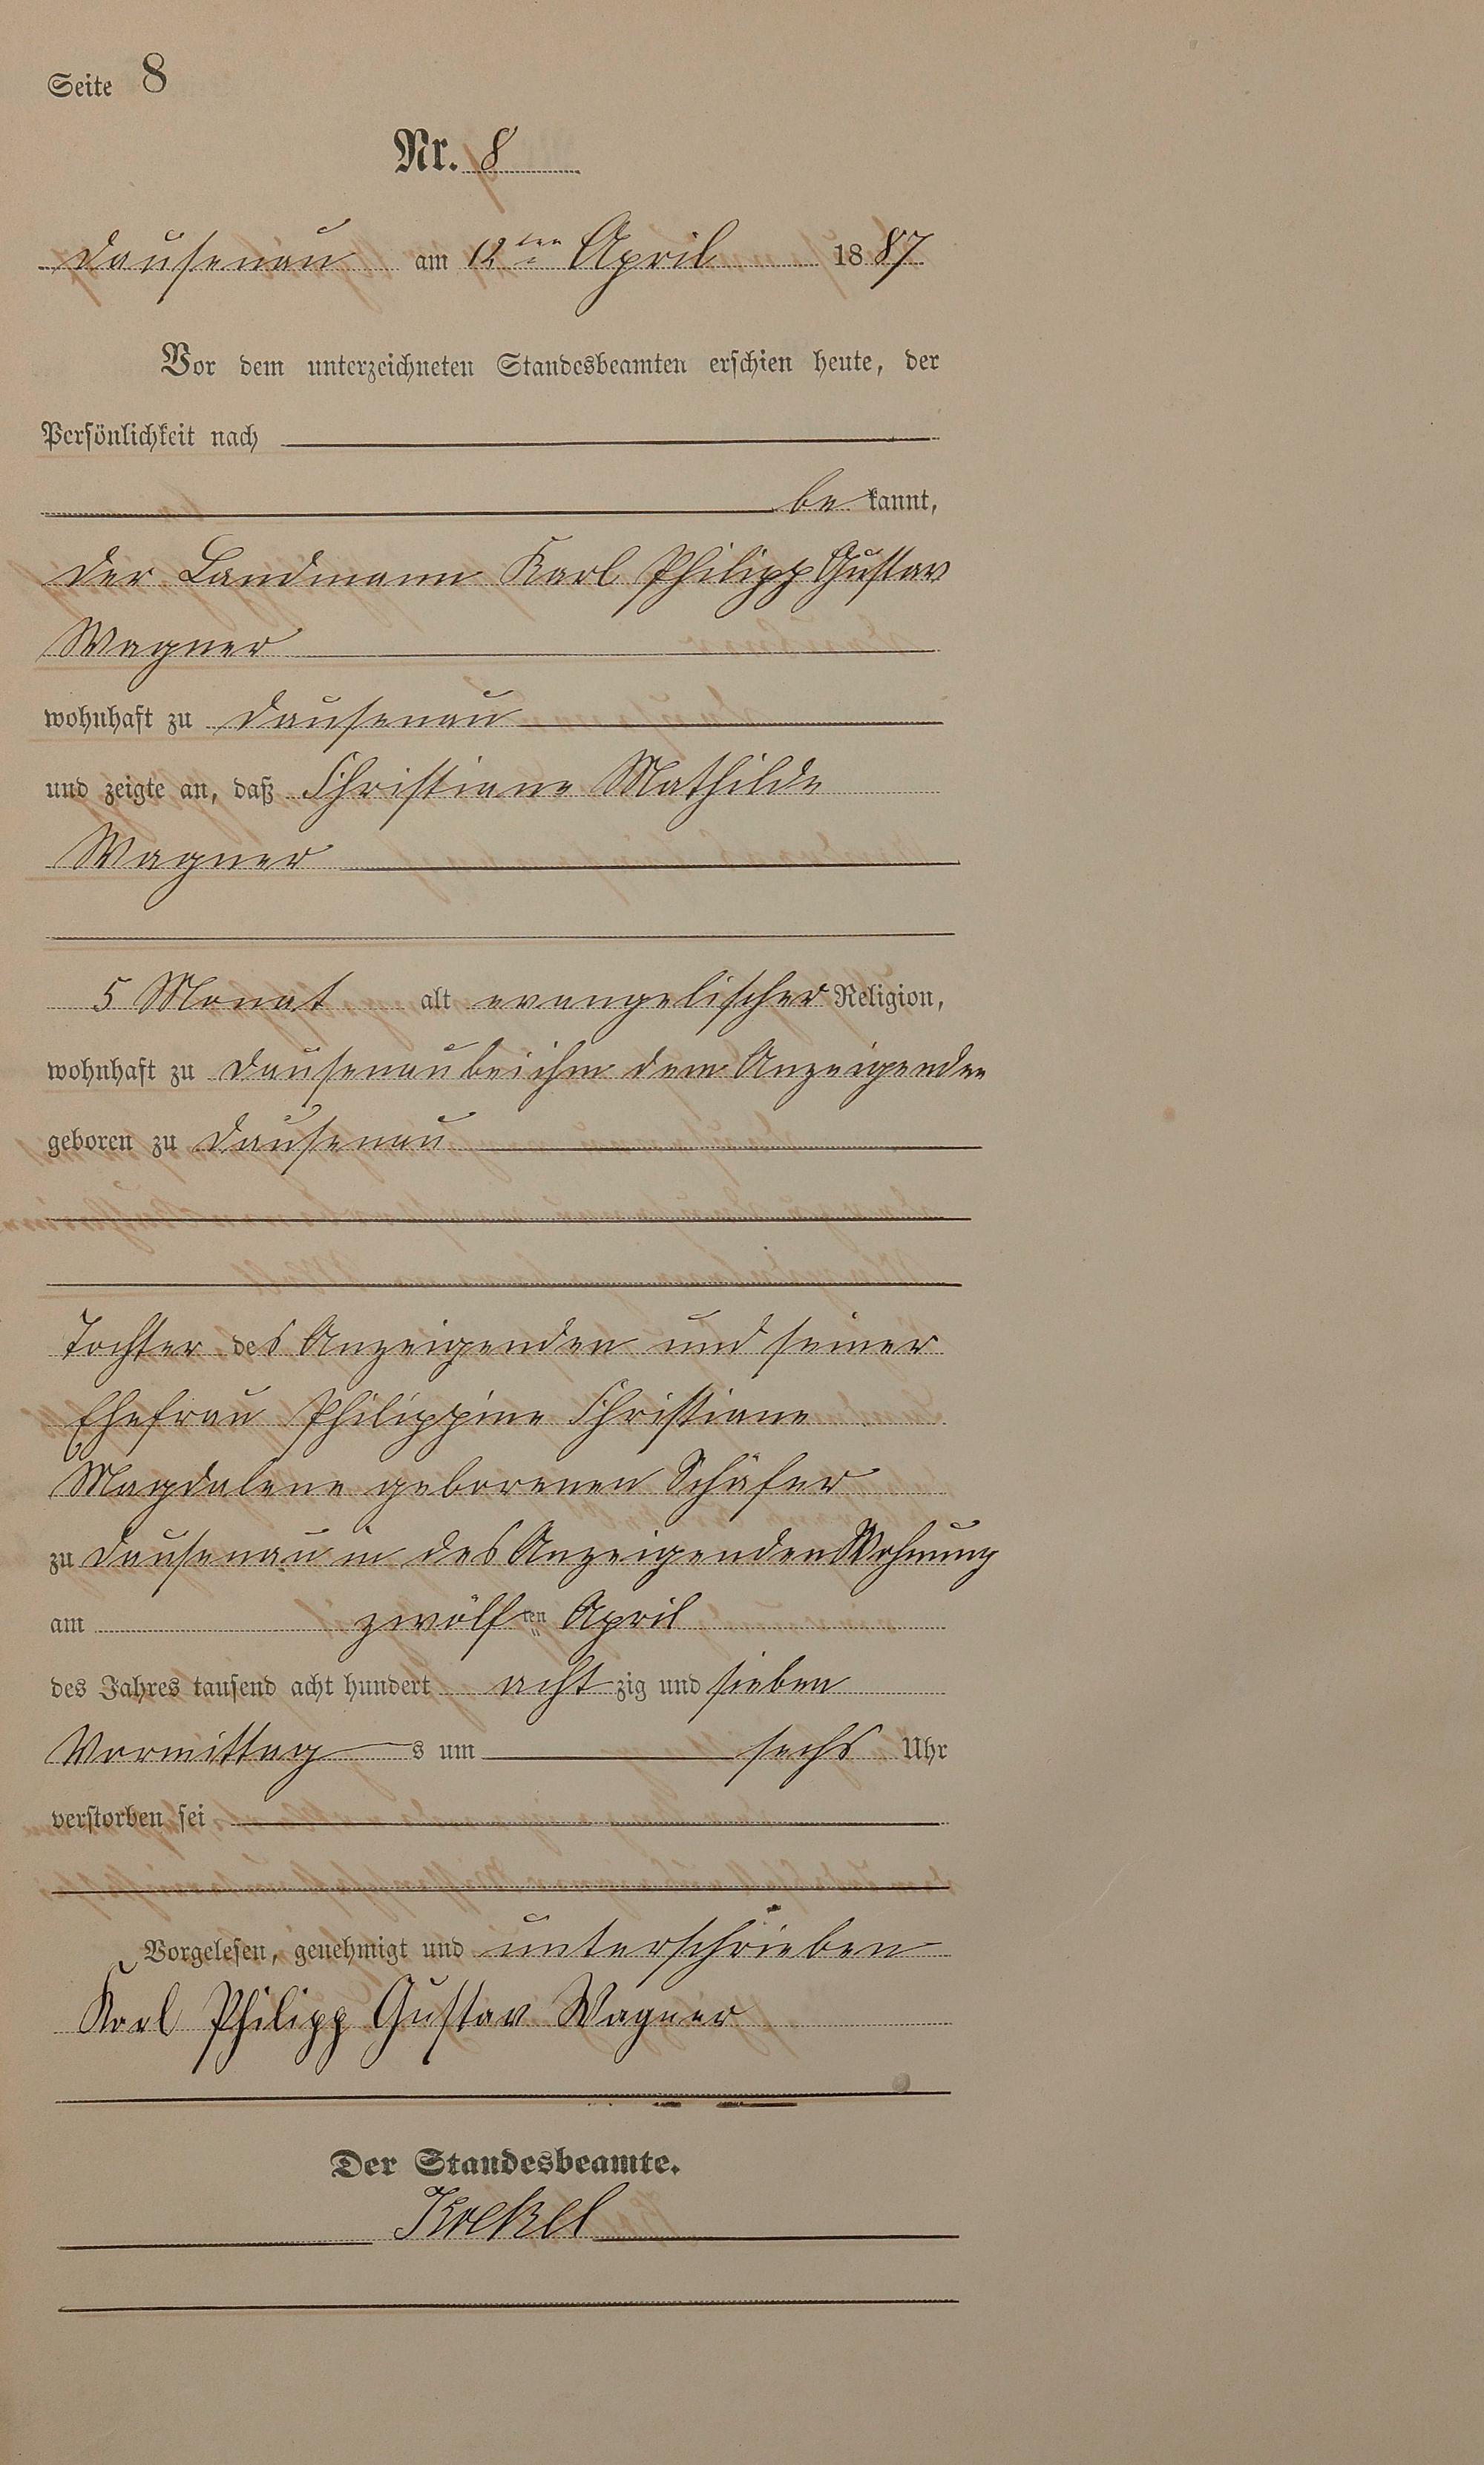 Seite 8
Nr. 8
Dausenau am 12ten April 1887
Vor dem unterzeichneten Standesbeamten erschien heute, der
Persönlichkeit nach
bekannt,
der Landmann Karl Philipp Gustav
Wagner
wohnhaft zu Dausenau
und zeigte an, daß Christiane Mathilde
Wagner
5 Monat alt evangelischer Religion,
wohnhaft zu Dausenau bei ihm dem Anzeigenden
geboren zu Dausenau
Tochter des Anzeigenden und seiner
Ehefrau Philippine Christiane
Magdalene geborenen Schäfer
zu Dausenau in des Anzeigenden Wohnung
am zwölften April
des Jahres tausend acht hundert achtzig und sieben
Vormittags um sechs Uhr
verstorben sei
Vorgelesen, genehmigt und unterschrieben
Karl Philipp Gustav Wagner
Der Standesbeamte.